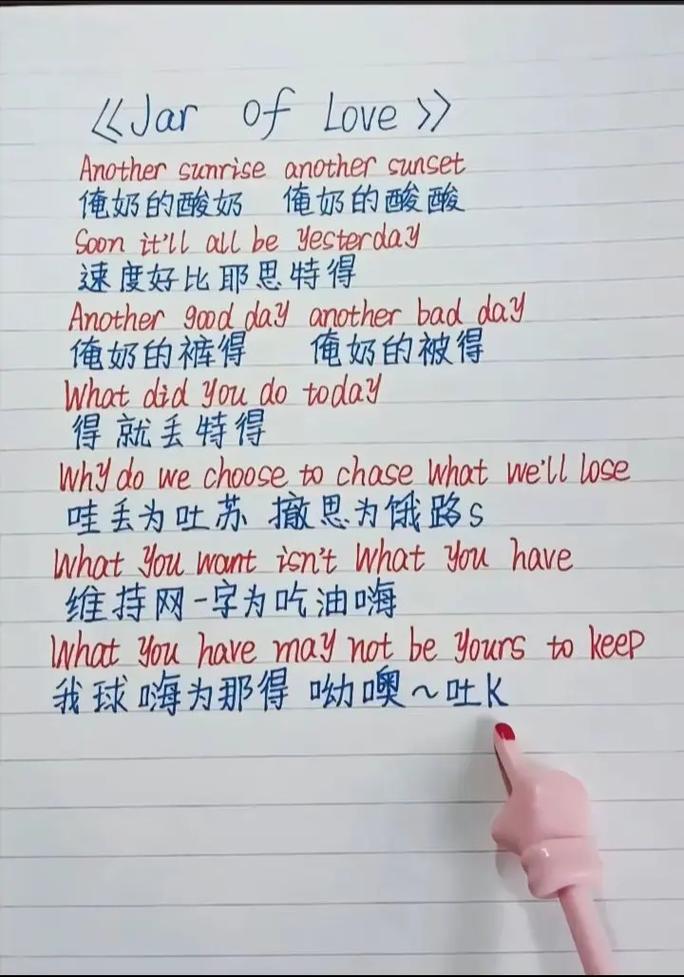 《Jar of Love》
Another sunrise another sunset
俺奶的酸奶 俺奶的酸酸
Soon it'll all be yesterday
速度好比耶思特得
Another good day another bad day
俺奶的裤得 俺奶的被得
What did you do today
得就丢特得
Why do we choose to chase what we'll lose
哇丢为吐苏 撤思为饿路s
What you want isn't what you have
维持网一字为吃油嗨
What you have may not be yours to keep
我球嗨为那得 呦噢~吐K